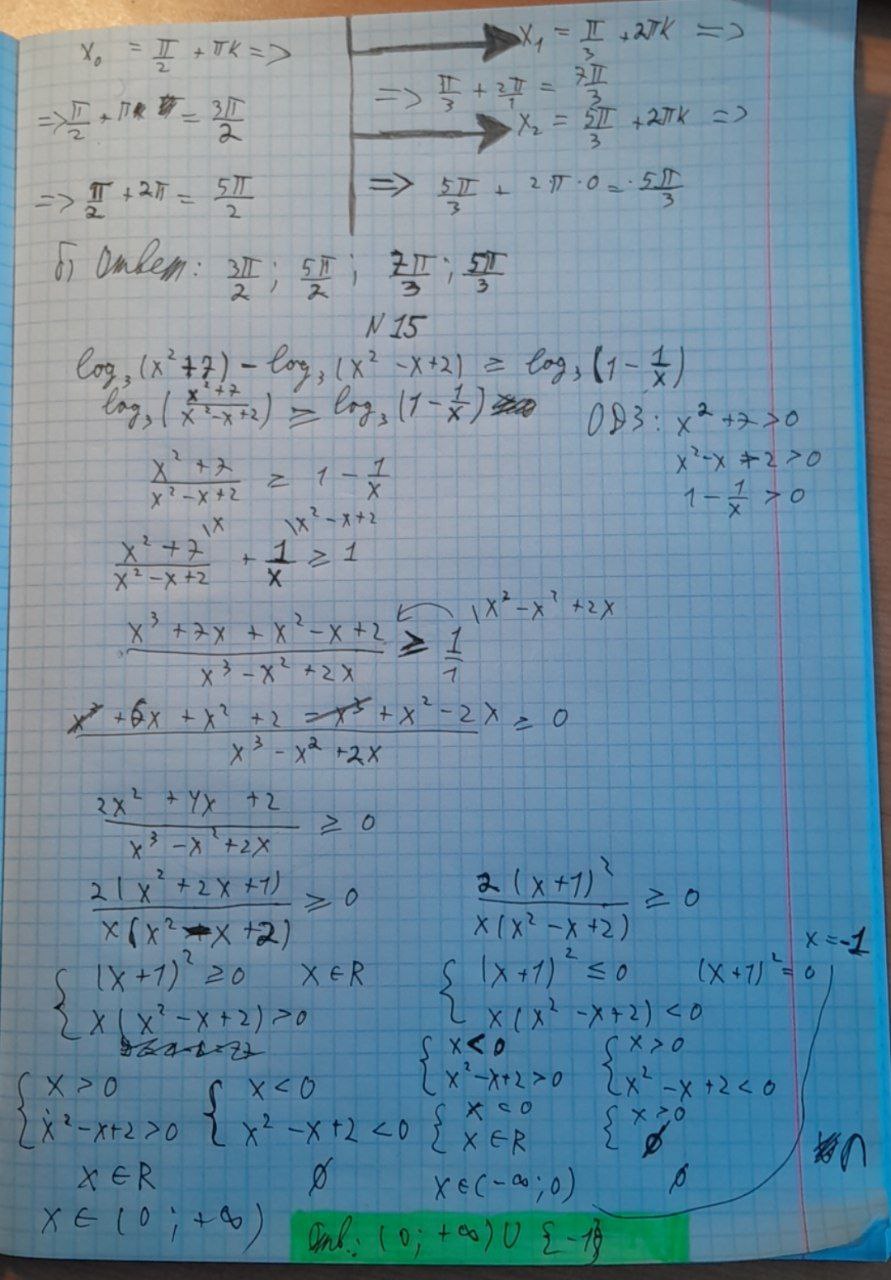 x₀ = π/2 + πk =>
=> π/2 + π = 3π/2
=> π/2 + 2π = 5π/2
x₁ = π/3 + 2πk =>
=> π/3 + 2π/1 = 7π/3
x₂ = 5π/3 + 2πk =>
=> 5π/3 + 2π·0 = 5π/3
б) Ответ: 3π/2; 5π/2; 7π/3; 5π/3
N 15
log₃(x²+7) - log₃(x² -x+2) ≥ log₃(1 - 1/x)
log₃((x²+7)/(x²-x+2)) ≥ log₃(1 - 1/x)
ОДЗ: x² +7>0
x²-x+2>0
1 - 1/x > 0
(x²+7)/(x²-x+2) ≥ 1 - 1/x
(x²+7)/(x²-x+2) \x + 1/x \x²-x+2 ≥ 1
(x³ +7x + x² -x+2)/(x³ -x² +2x) ≥ 1/1 \x³ -x² +2x
(x³ +6x + x² +2 -x³ + x² -2x)/(x³ -x² +2x) ≥ 0
(2x² +4x +2)/(x³ -x²+2x) ≥ 0
2(x² +2x+1)/(x(x² -x+2)) ≥ 0
2(x+1)²/(x(x² -x+2)) ≥ 0
{ (x+1)² ≥0 x∈R
x(x² -x+2)>0
{ (x+1)² ≤ 0 (x+1)² = 0 x=-1
x(x² -x+2)<0
{ x > 0
x²-x+2>0
x∈R
x∈(0; +∞)
{ x < 0
x² -x+2<0
∅
{ x<0
x²-x+2>0
{ x<0
x∈R
x∈(-∞;0)
{ x>0
x² -x+2<0
{ x>0
∅
∅
∩
Отв.: (0; +∞) U {-1}